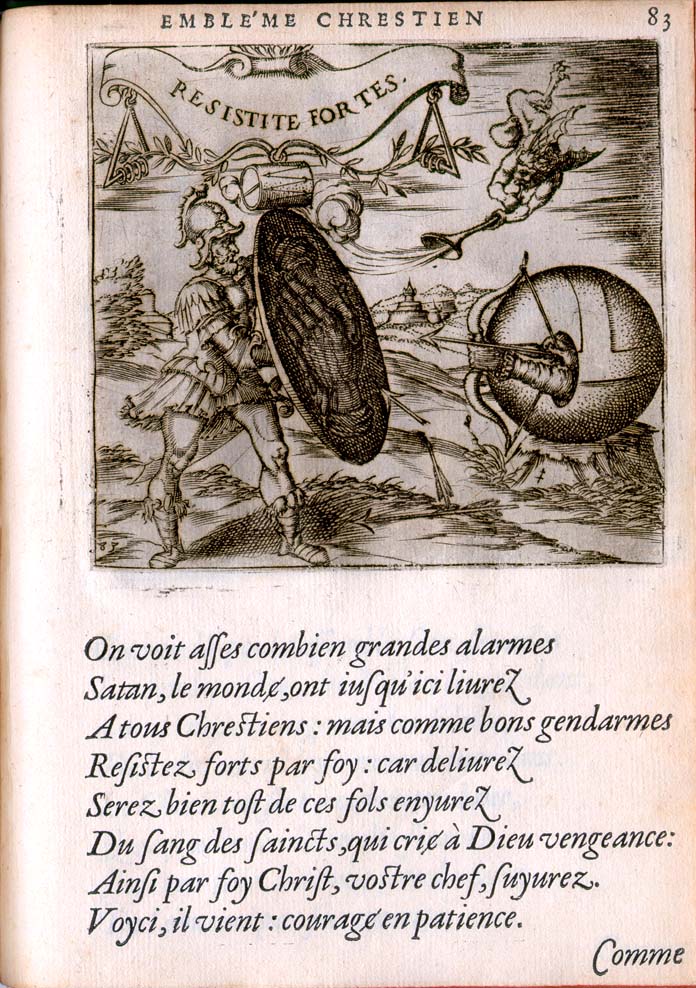 EMBLE'ME CHRESTIEN 83
RESISTITE FORTES.
83
On voit aſſes combien grandes alarmes
Satan, le monde, ont iuſqu'ici liurez
A tous Chreſtiens : mais comme bons gendarmes
Reſiſtez forts par foy : car deliurez
Serez bien toſt de ces fols enyurez
Du ſang des ſaincts, qui crie à Dieu vengeance:
Ainſi par foy Chriſt, voſtre chef, ſuyurez.
Voyci, il vient : courage en patience.
Comme